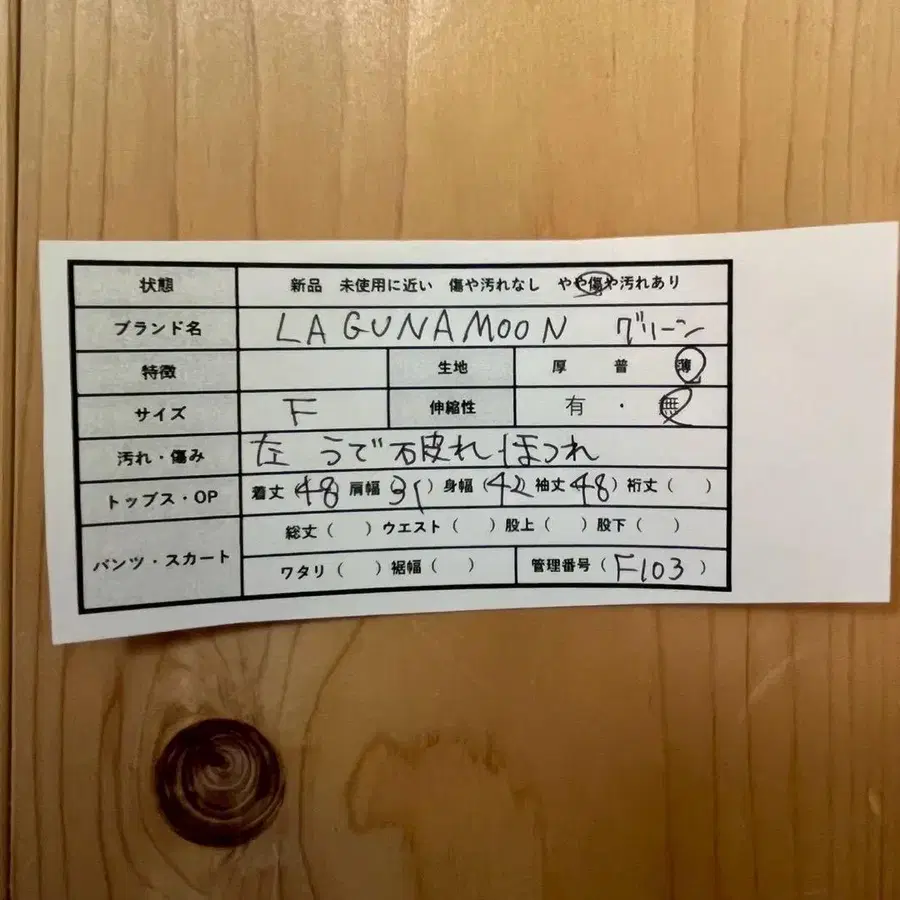 状態 新品 未使用に近い 傷や汚れなし やや傷や汚れあり
ブランド名 LAGUNAMOON グリーン
特徴 生地 厚 普 薄
サイズ F 伸縮性 有 ・ 無
汚れ・傷み 左 うで 破れ ほつれ
トップス・OP 着丈(48 肩幅 31) 身幅(42 袖丈 48) 裄丈( )
パンツ・スカート 総丈( ) ウエスト( ) 股上( ) 股下( )
ワタリ( ) 裾幅( ) 管理番号(F103)